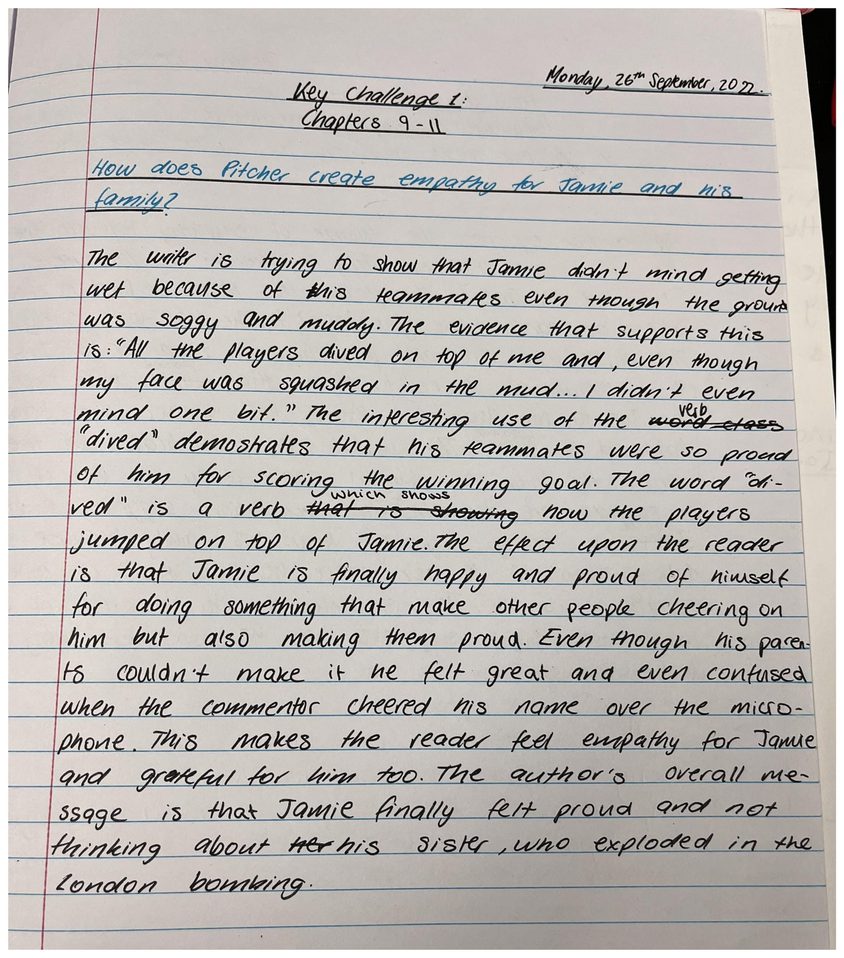 Monday, 26th September, 2022.
Key Challenge 1:
Chapters 9-11
How does Pitcher create empathy for Jamie and his
family?
The writer is trying to show that Jamie didn't mind getting
wet because of his teammates even though the ground
was soggy and muddy. The evidence that supports this
is: "All the players dived on top of me and, even though
my face was squashed in the mud... I didn't even
mind one bit." The interesting use of the word class verb
"dived" demostrates that his teammates were so proud
of him for scoring the winning goal. The word "di-
ved" is a verb that is showing which shows how the players
jumped on top of Jamie. The effect upon the reader
is that Jamie is finally happy and proud of himself
for doing something that make other people cheering on
him but also making them proud. Even though his paren-
ts couldn't make it he felt great and even confused
when the commentor cheered his name over the micro-
phone. This makes the reader feel empathy for Jamie
and grateful for him too. The author's overall me-
ssage is that Jamie finally felt proud and not
thinking about her his sister, who exploded in the
London bombing.